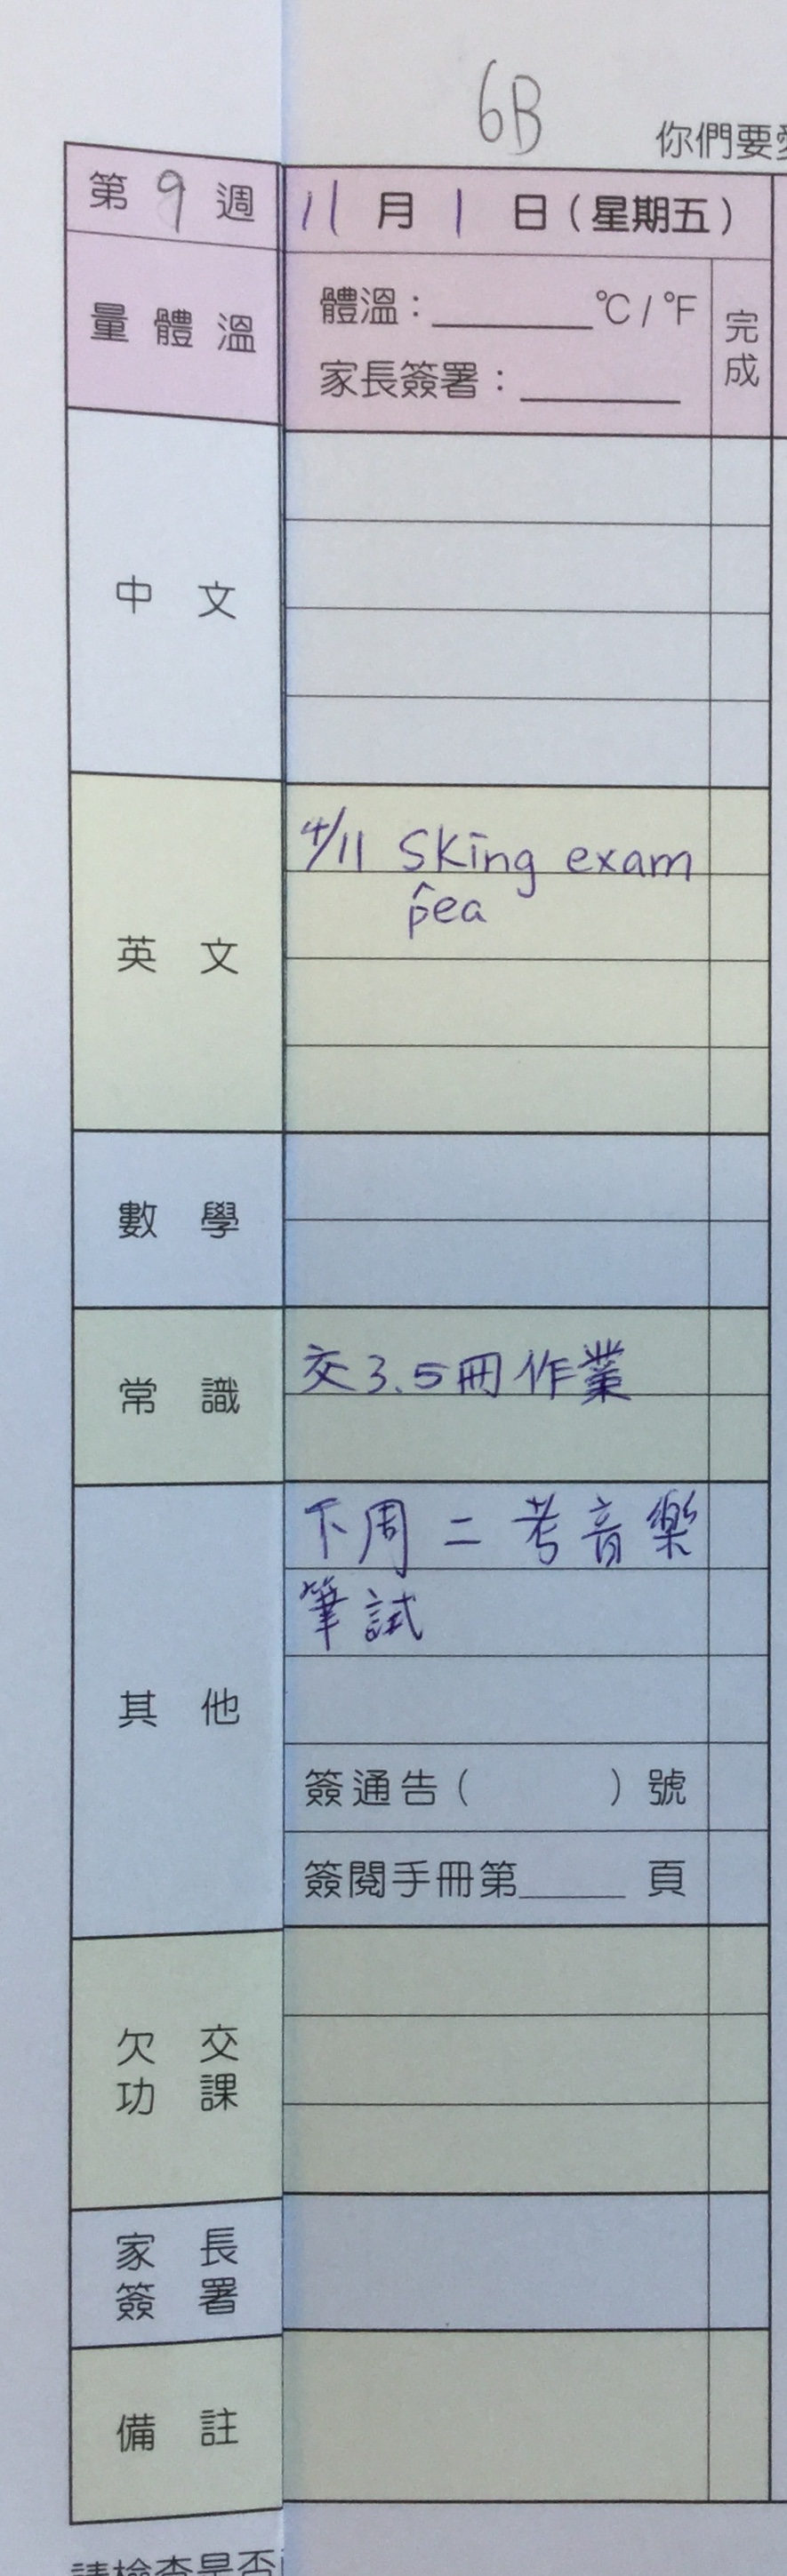 6B
你們要
第 9 週
11 月 1 日（星期五）
量體溫
體溫：______°C / °F
家長簽署：______
完成
中文
英文
4/11 Sking exam
pea
數學
常識
交3.5冊作業
其他
下周二考音樂
筆試
簽通告（ ）號
簽閱手冊第____ 頁
欠交
功課
家長
簽署
備註
請檢查是否